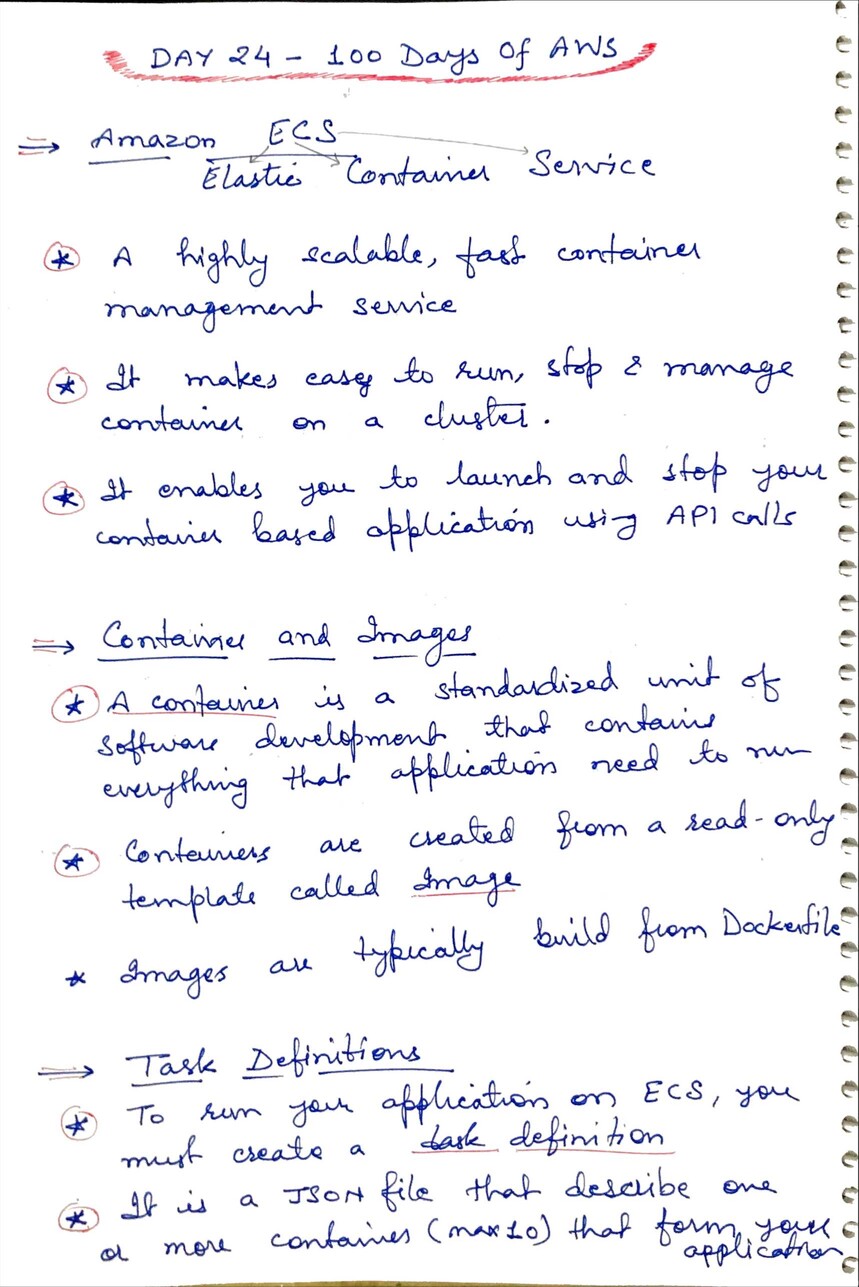 DAY 24 - 100 Days Of AWS
⇒ Amazon ECS
Elastic Container Service
* A highly scalable, fast container
management service
* It makes easy to run, stop & manage
container on a cluster.
* It enables you to launch and stop your
container based application using API calls
⇒ Container and Images
* A container is a standardized unit of
software development that contains
everything that application need to run
* Containers are created from a read-only
template called Image
* Images are typically build from Dockerfile
⇒ Task Definitions
* To run your application on ECS, you
must create a task definition
* It is a JSON file that describe one
or more containers (max 10) that form your
application